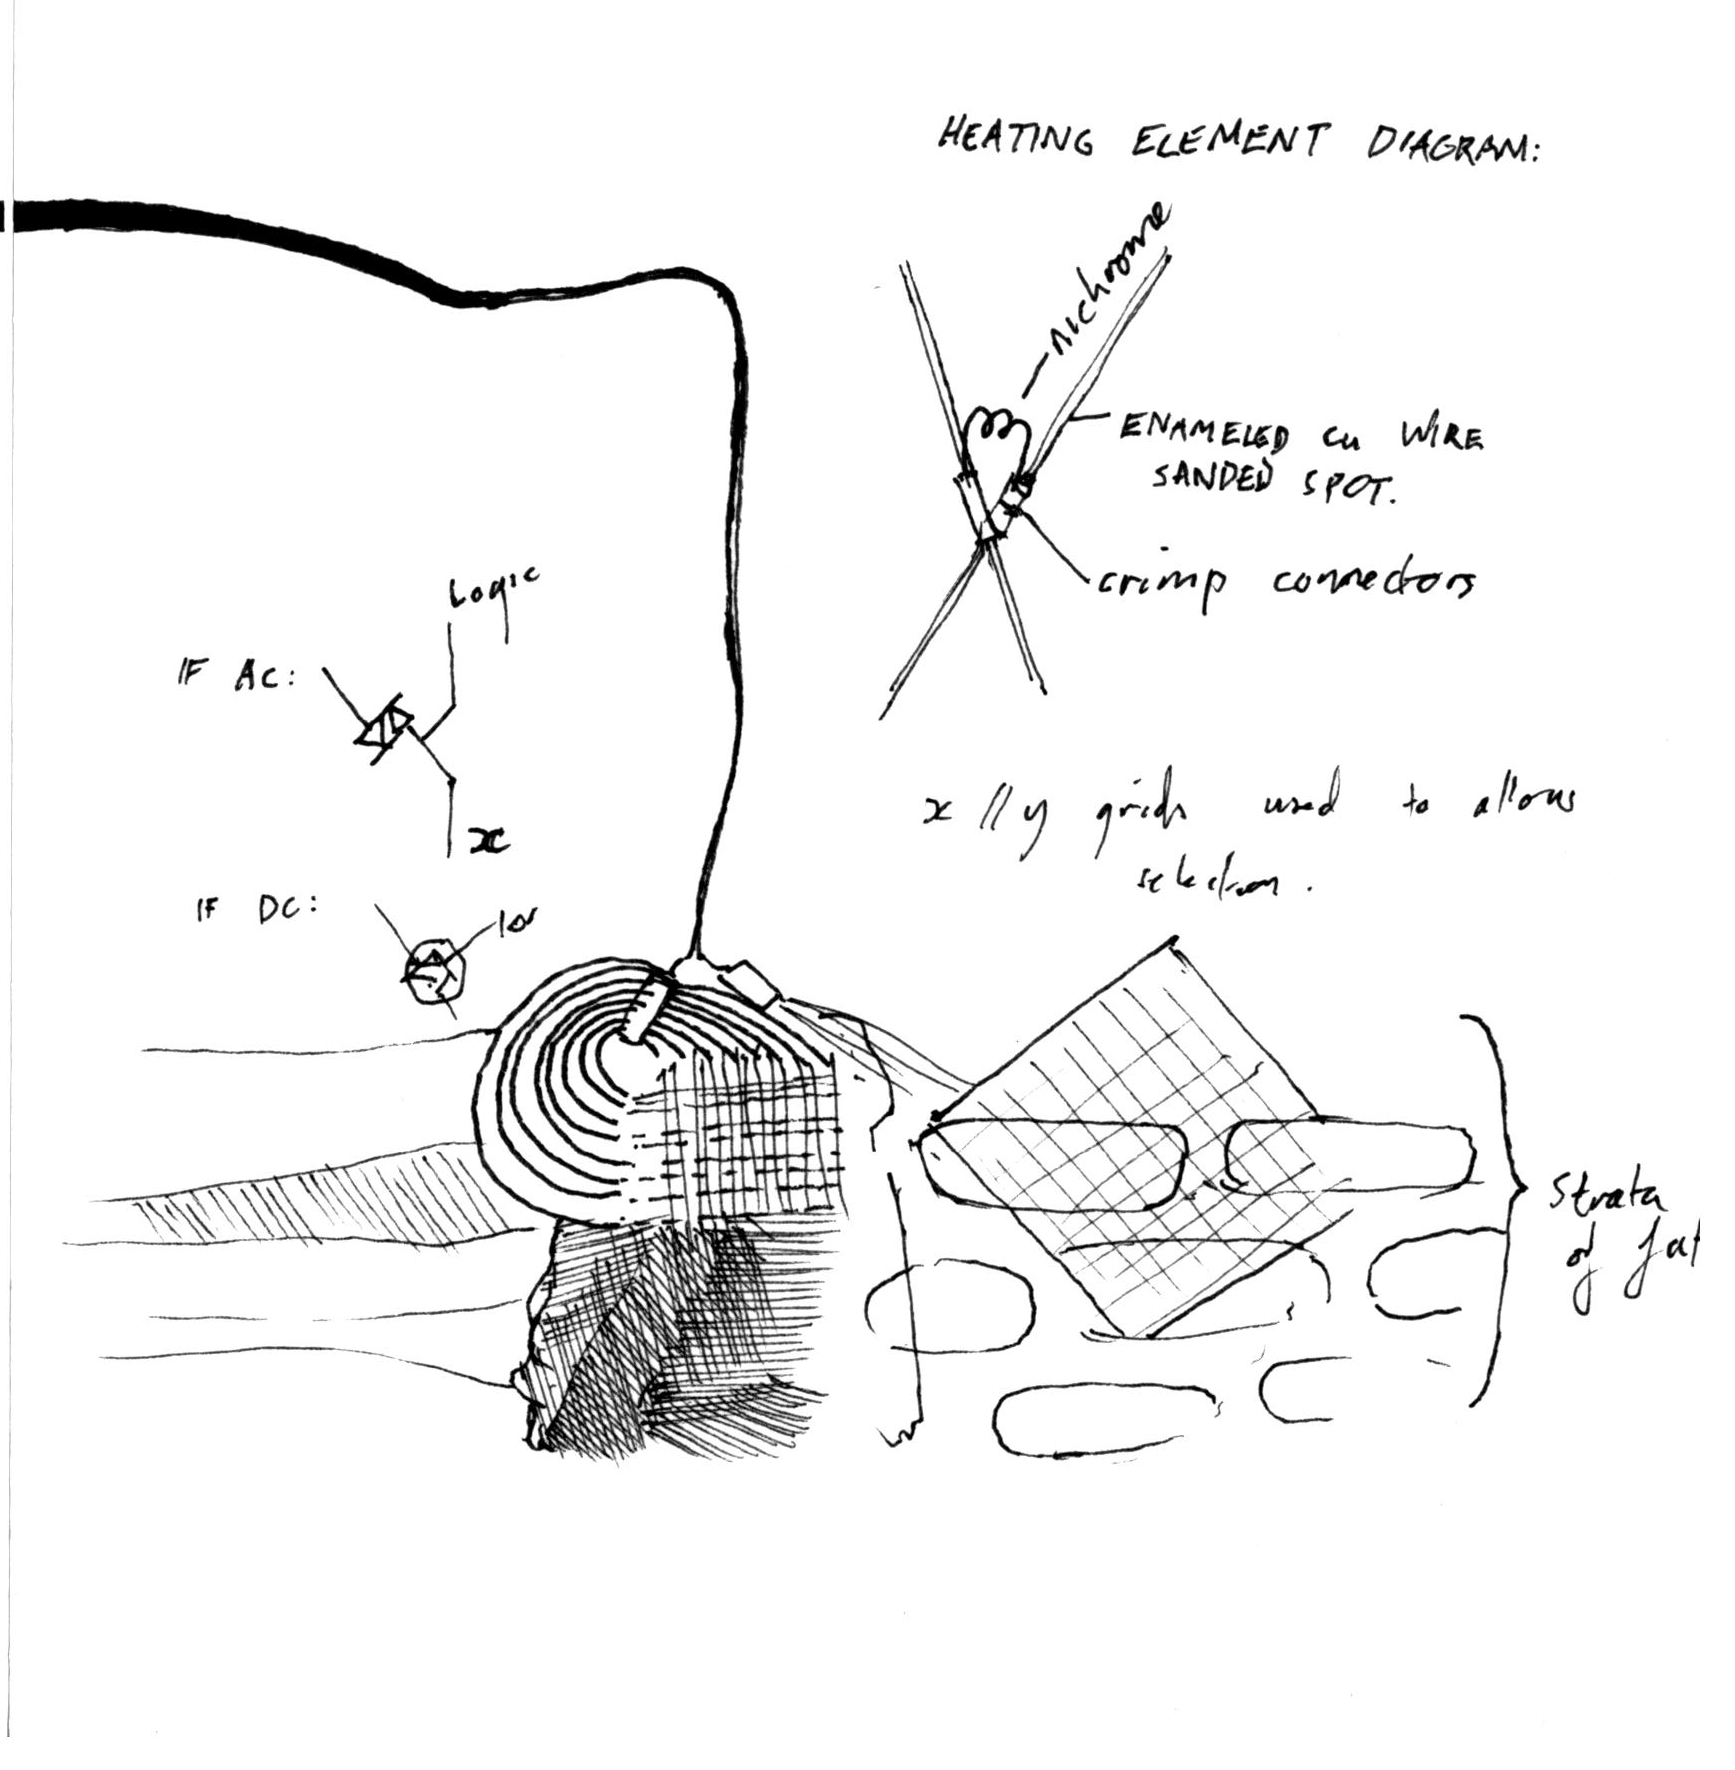 HEATING ELEMENT DIAGRAM:
nichrome
ENAMELED Cu WIRE
SANDED SPOT.
crimp connectors
Logic
IF AC:
x
x // y grids used to allow
selection.
IF DC:
Strata
of fat